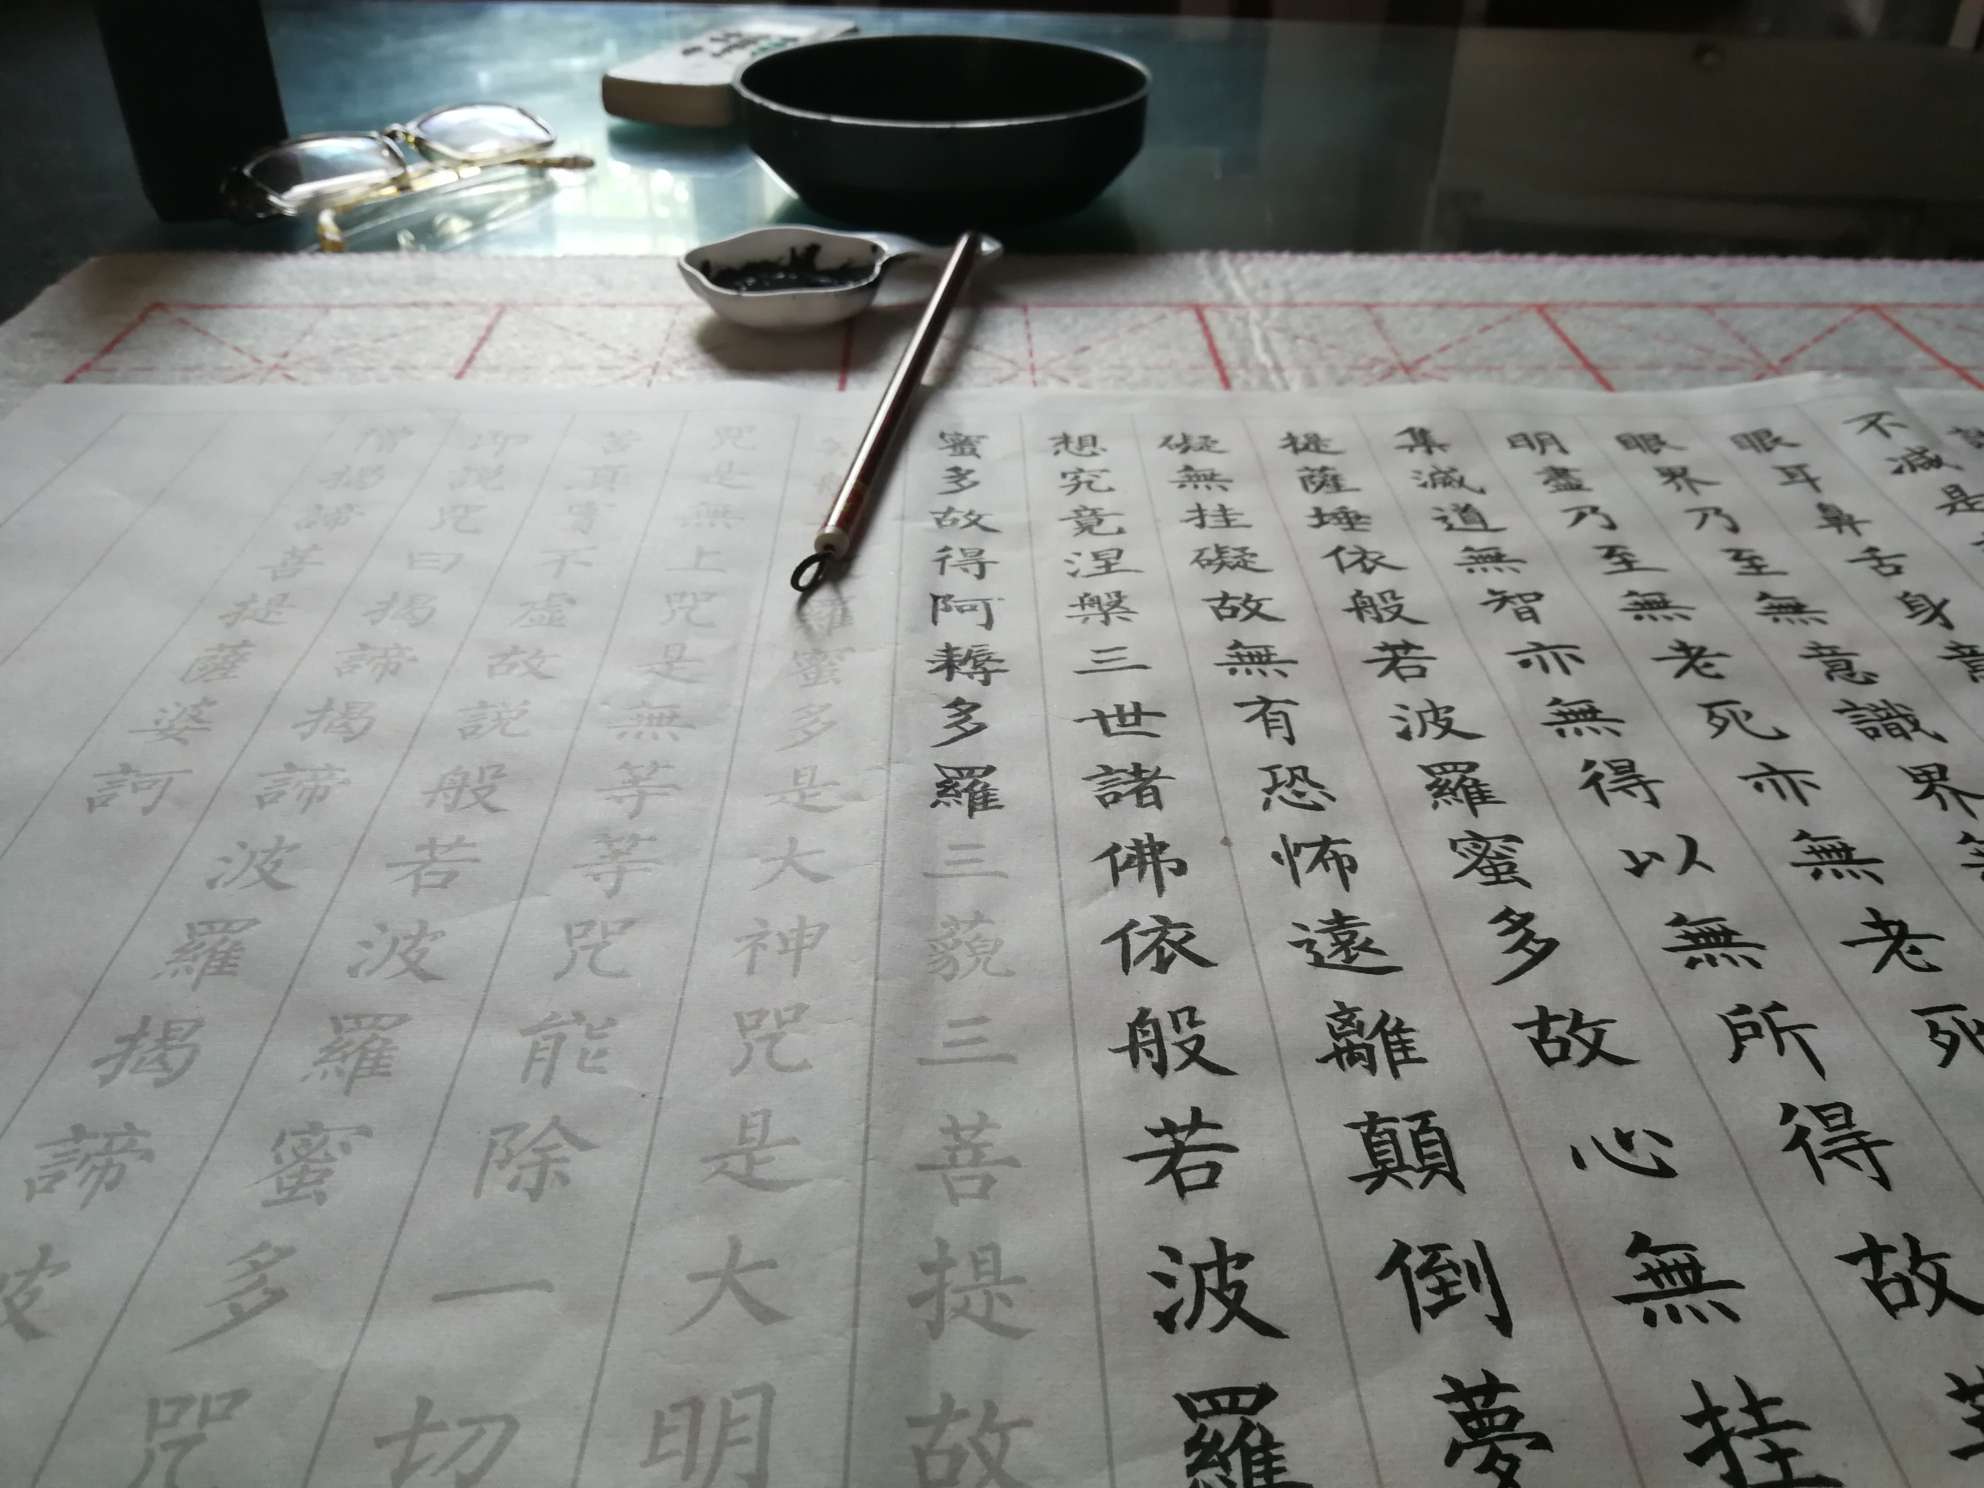 不減是
眼耳鼻舌身意
眼界乃至無意識界無
明盡乃至無老死亦無老死
集滅道無智亦無得以無所得故
提薩埵依般若波羅蜜多故心無挂
礙無挂礙故無有恐怖遠離顛倒夢
想究竟涅槃三世諸佛依般若波羅
蜜多故得阿耨多羅三藐三菩提故
羅蜜多是大神咒是大明
咒是無上咒是無等等咒能除一切
苦真實不虛故說般若波羅蜜多咒
即說咒曰揭諦揭諦波羅揭諦波
僧揭諦菩提薩婆訶